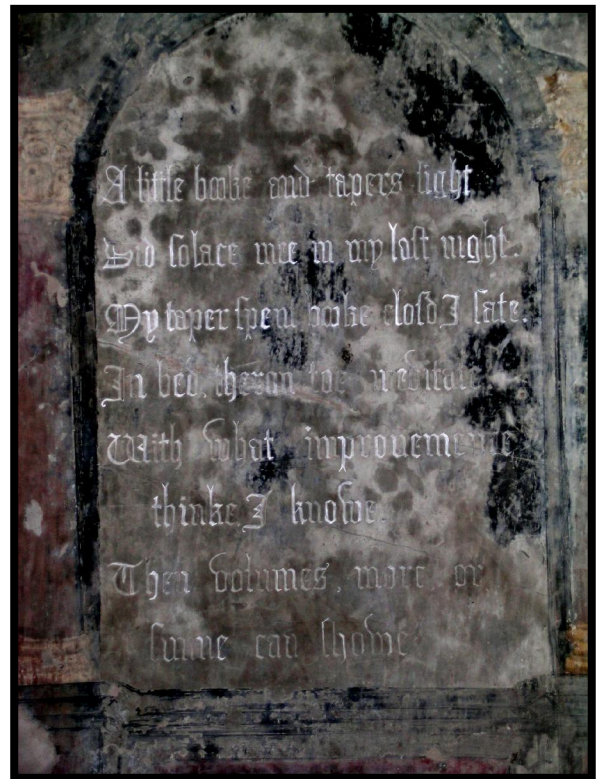 A little booke and tapers light
Did solace mee in my last night.
My taper spent booke closd I sate.
In bed, theron toe meditate
With what improvemente
thinke I knowe.
Then volumes, more or
sunne can showe